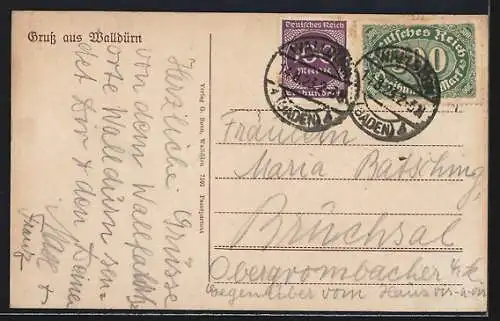 Gruß aus Walldürn
Herzliche Grüsse
von dem Wallfahrts
orte Walldürn sen-
det Dir & den Deinen
Franz
Verlag G. Horn, Walldürn 7500
Deutsches Reich
Mark
Deutsches Reich
Mark
(BADEN)
(BADEN)
Fräulein
Maria Batschung
Bruchsal
Obergrombacher
gegenüber vom